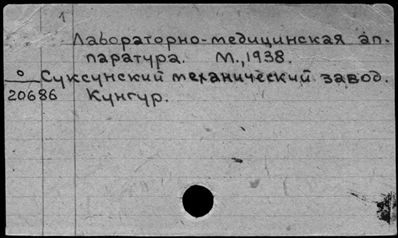 1
Лабораторно-медицинская ап-
паратура. М., 1938.
о Суксунский механический завод.
20686 Кунгур.